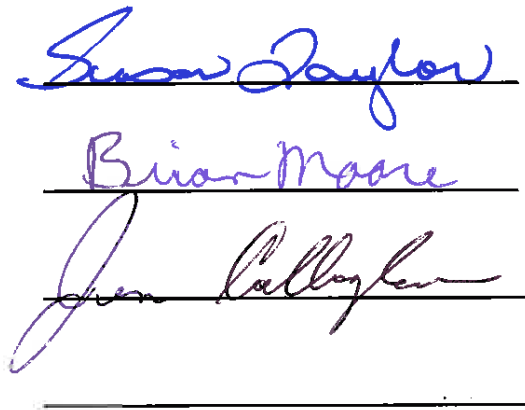 Susan Taylor
Brian Moore
Jim Callaghan